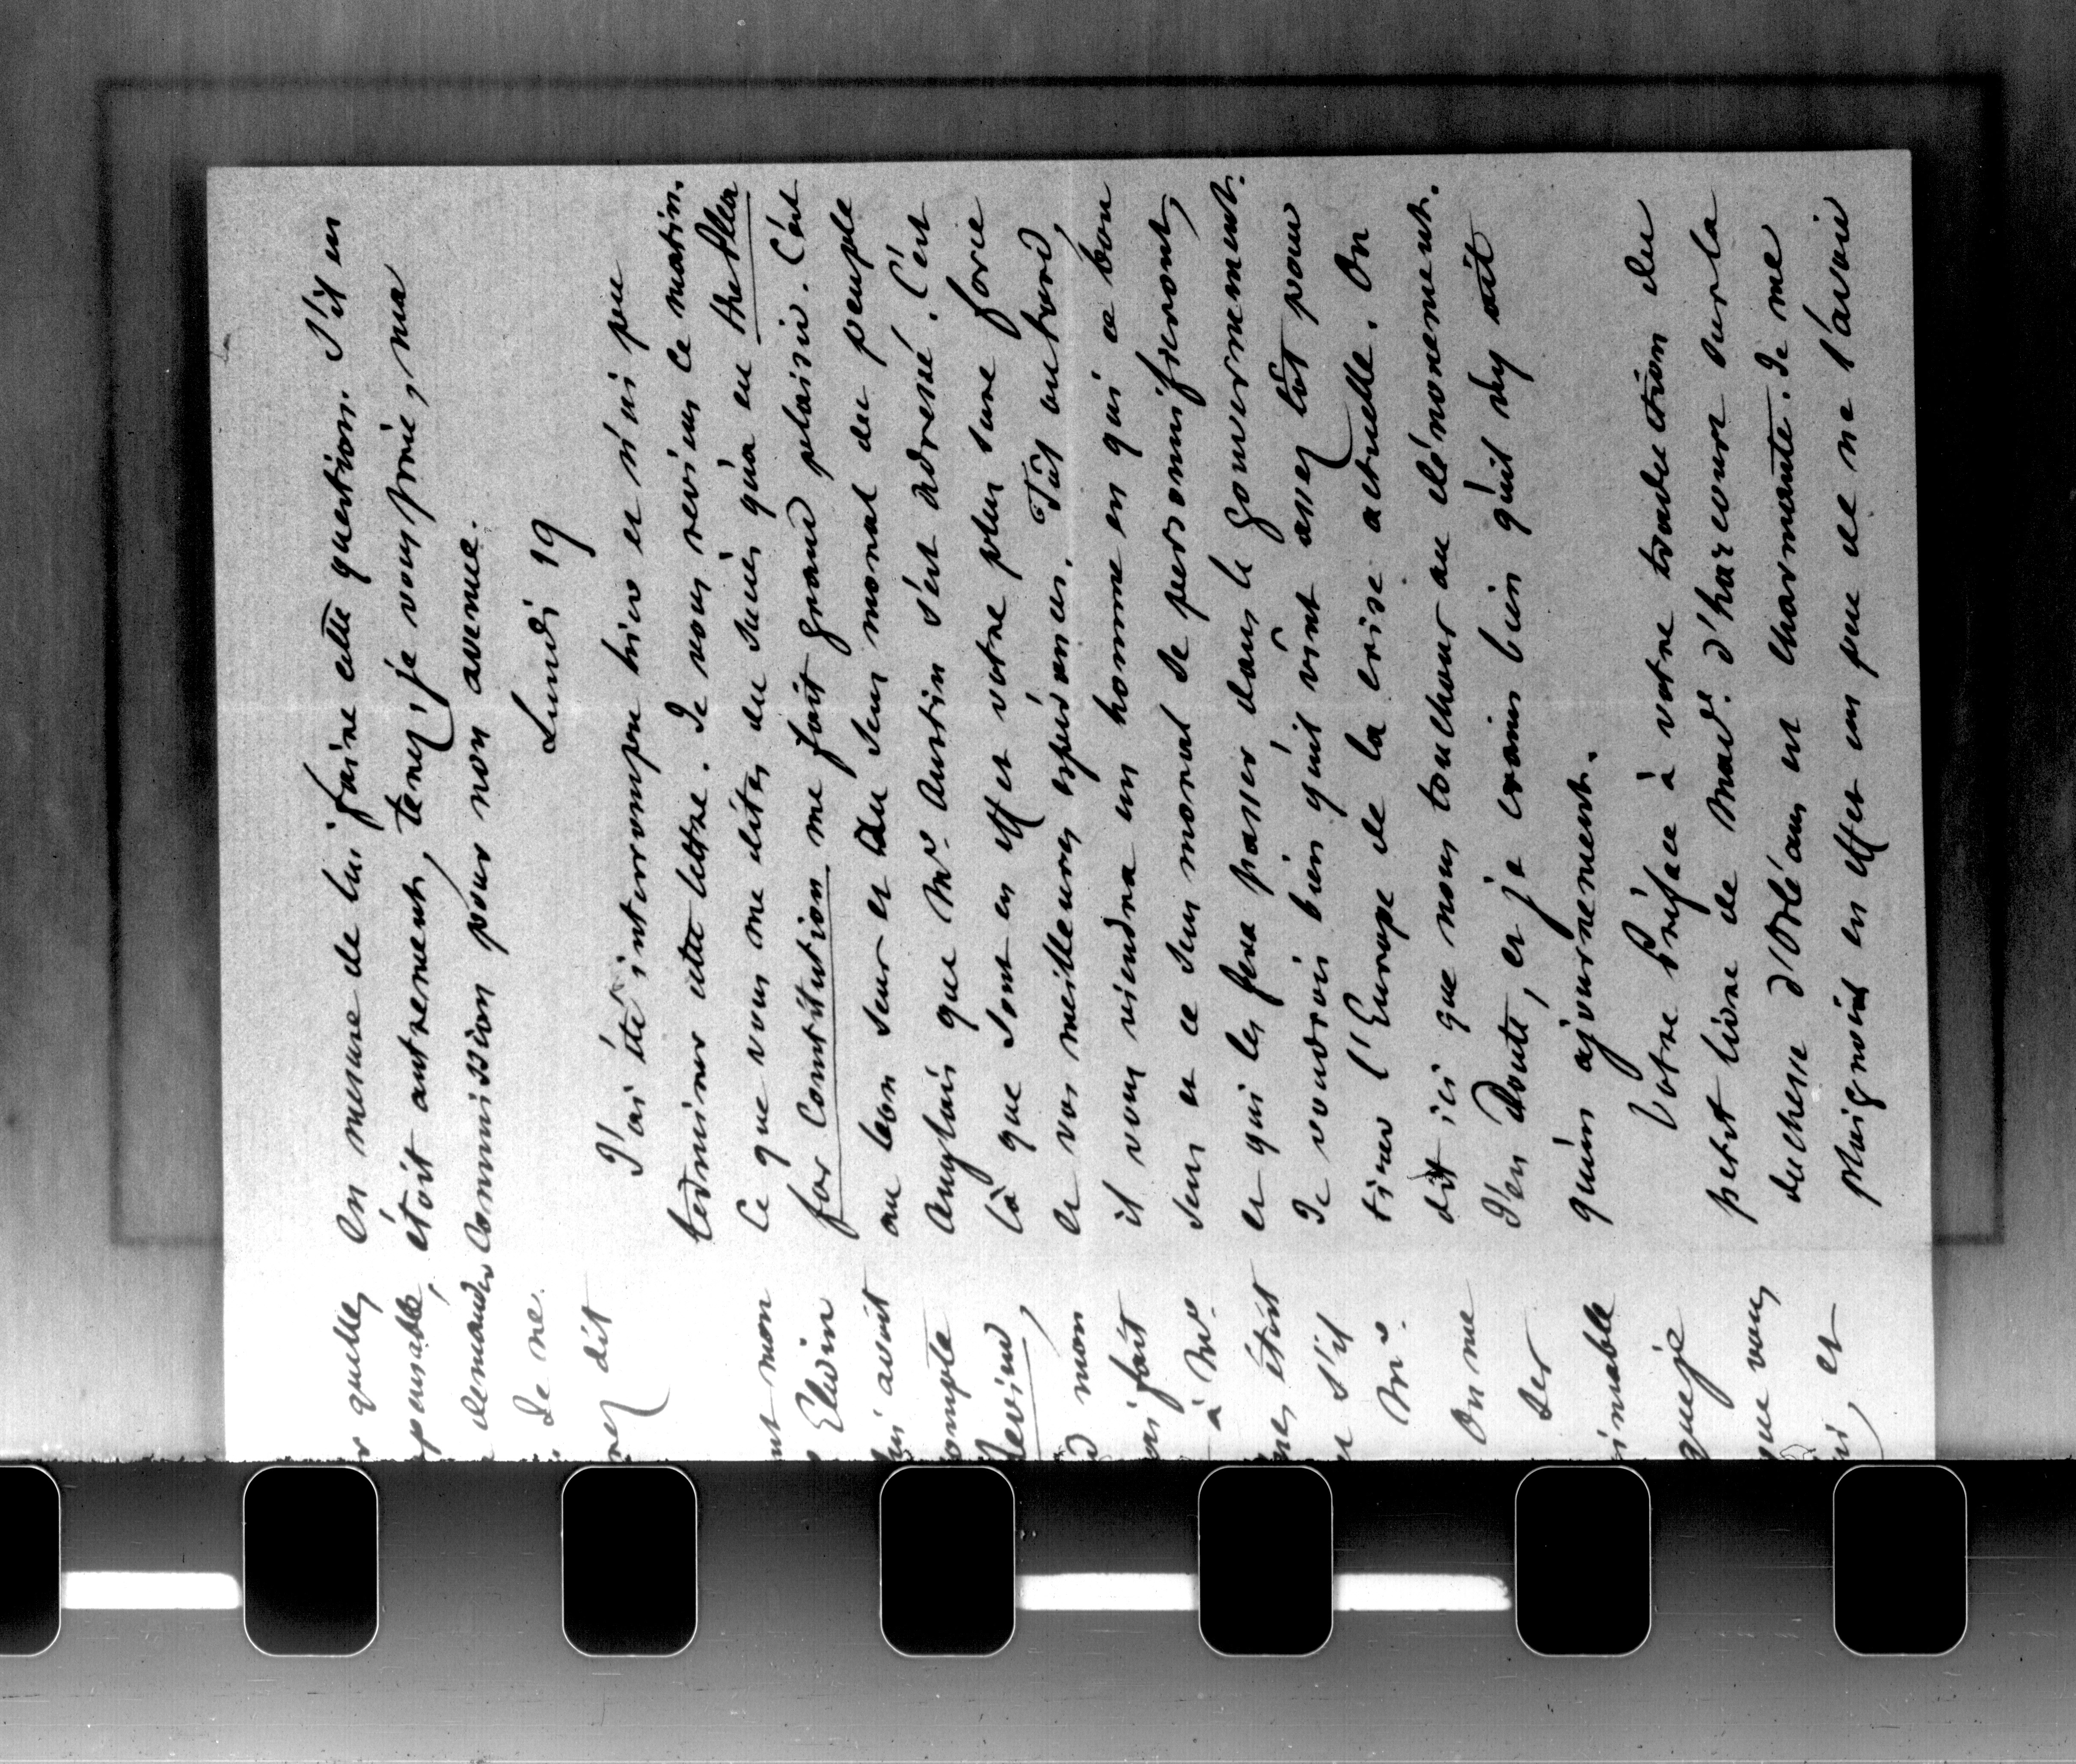 r quelle,
pensable,
demander
. Je ne.
nez dit
nt mon
Elwin
lui avoit
compte
Review,
d mon
ai fait
à Mr.
étoit
s'il
Mr.
On me
ses
aimable
que je
que vous
et
en mesure de lui faire cette question. S'il en
étoit autrement, tenez, je vous prie, ma
commission pour non avenue.
Lundi 19
J'ai été interrompu hier et n'ai pu
terminer cette lettre. Je vous reviens ce matin.
Ce que vous me dites du succès qu'a eu the Plea
for Constitution me fait grand plaisir. C'est
au bon sens et au sens moral du peuple
Anglais que Mr. Austin s'est adressé. C'est
là que sont en effet votre plus sure force
et vos meilleures espérances. Tôt ou tard,
il vous viendra un homme en qui ce bon
sens et ce sens moral se personnifieront,
et qui les fera passer dans le gouvernement.
Je voudrois bien qu'il vint assez tôt pour
tirer l'Europe de la crise actuelle. On
dit ici que nous touchons au dénouement.
J'en doute, et je crains bien qu'il n'y ait
qu'un ajournement.
Votre Préface à votre traduction du
petit livre de Made. d'harcourt sur la
duchesse d'Orléans est charmante. Je me
plaignois en effet un peu de ne l'avoir